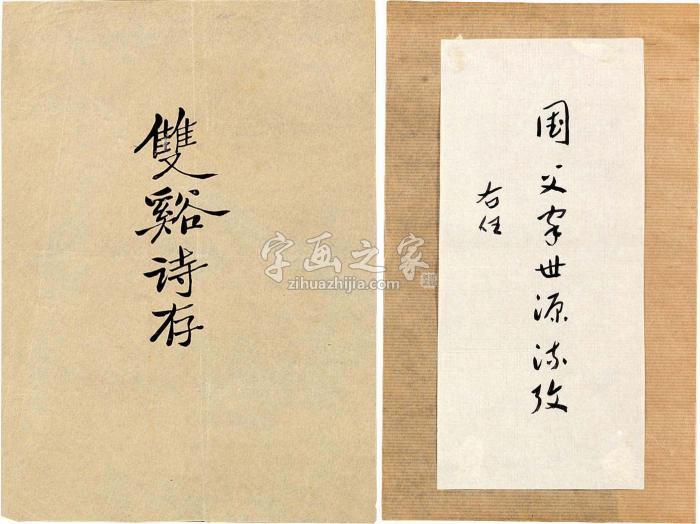 雙谿诗存
国父家世源流攷
右任
字画之家
zihuazhijia.com